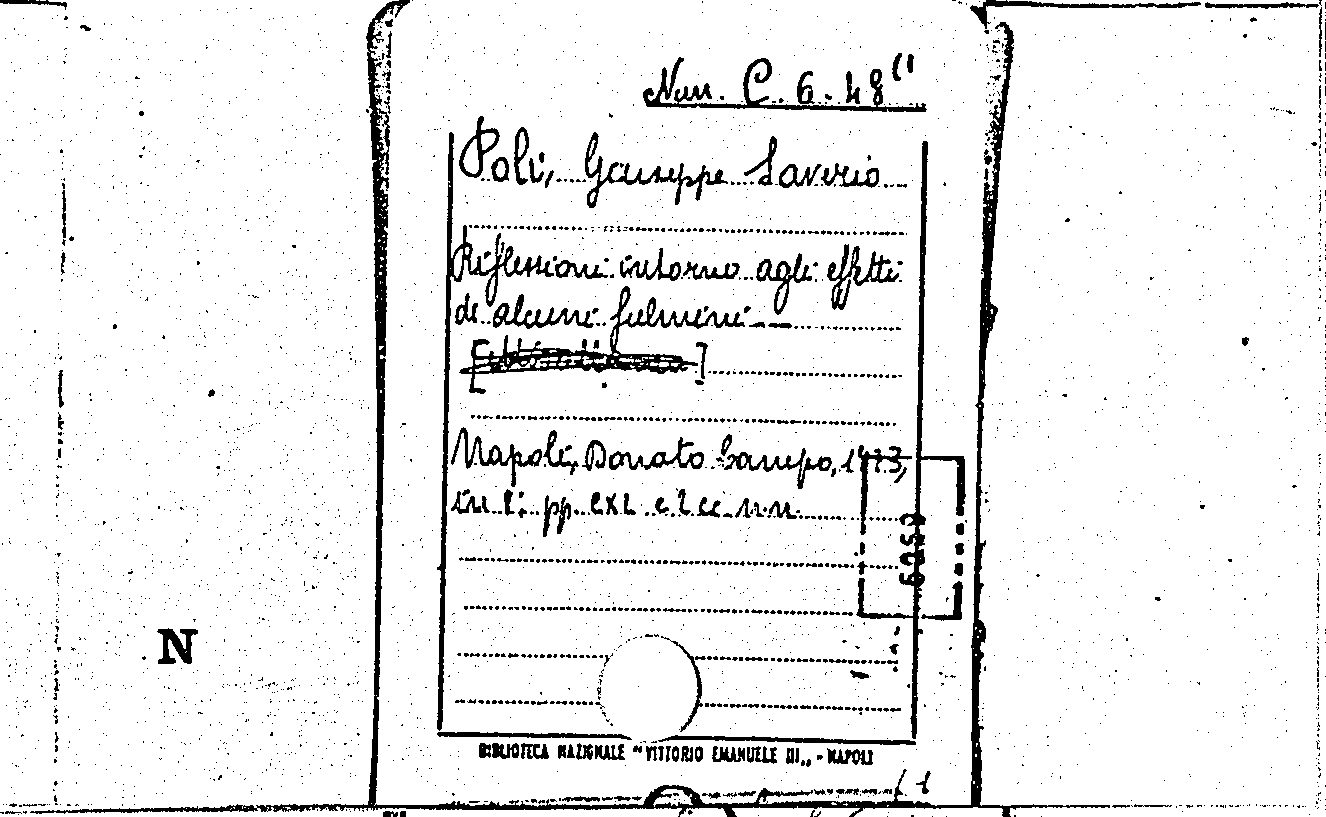 Nan. C. 6. 48 (1
Poli, Giuseppe Saverio
Riflessioni intorno agli effetti
di alcuni fulmini. —
Napoli, Donato Campo, 1773,
in 8: pp. CXL e 2 cc. n.n.
N
BIBLIOTECA NAZIONALE "VITTORIO EMANUELE III„ - NAPOLI